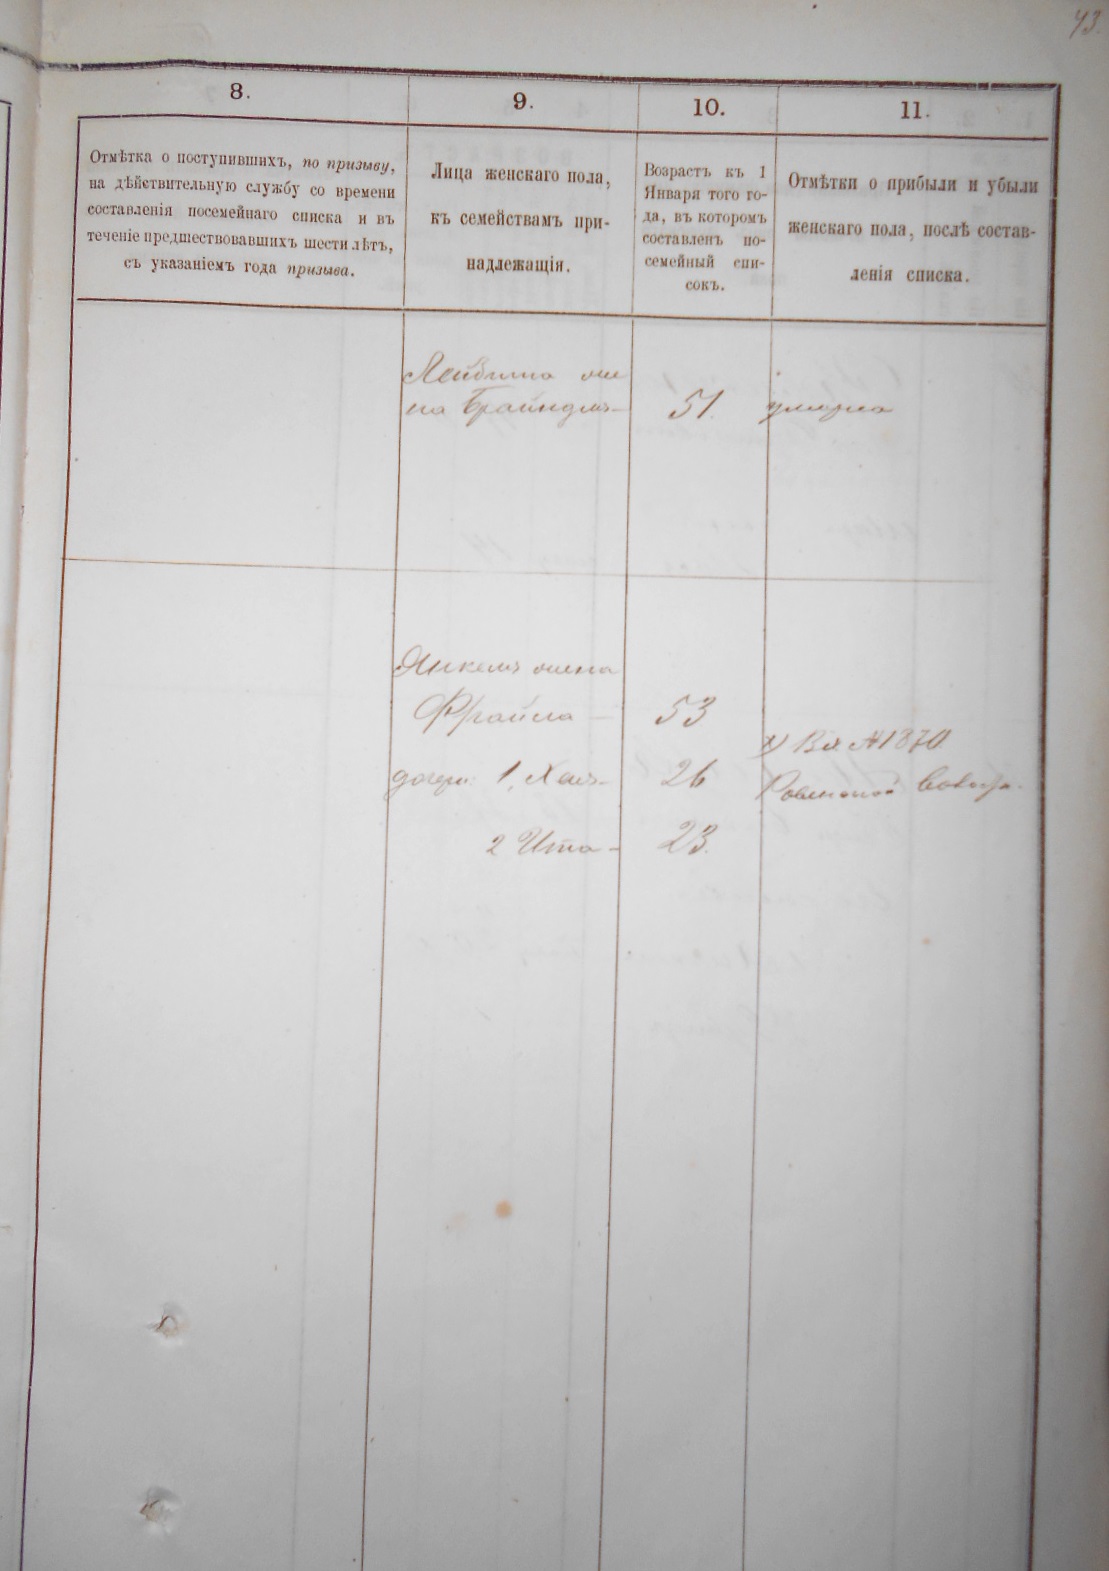 43.
8.
9.
10.
11.
Отмѣтка о поступившихъ, по призыву,
на дѣйствительную службу со времени
составленія посемейнаго списка и въ
теченіе предшествовавшихъ шести лѣтъ,
съ указаніемъ года призыва.
Лица женскаго пола,
къ семействамъ при-
надлежащія.
Возрастъ къ 1
Января того го-
да, въ которомъ
составленъ по-
семейный спи-
сокъ.
Отмѣтки о прибыли и убыли
женскаго пола, послѣ состав-
ленія списка.
же
на Брайндль 51. умерла
Янкель жена
Фрайла 53
дочери: 1, 26
2 Ита 23.
№ 1870